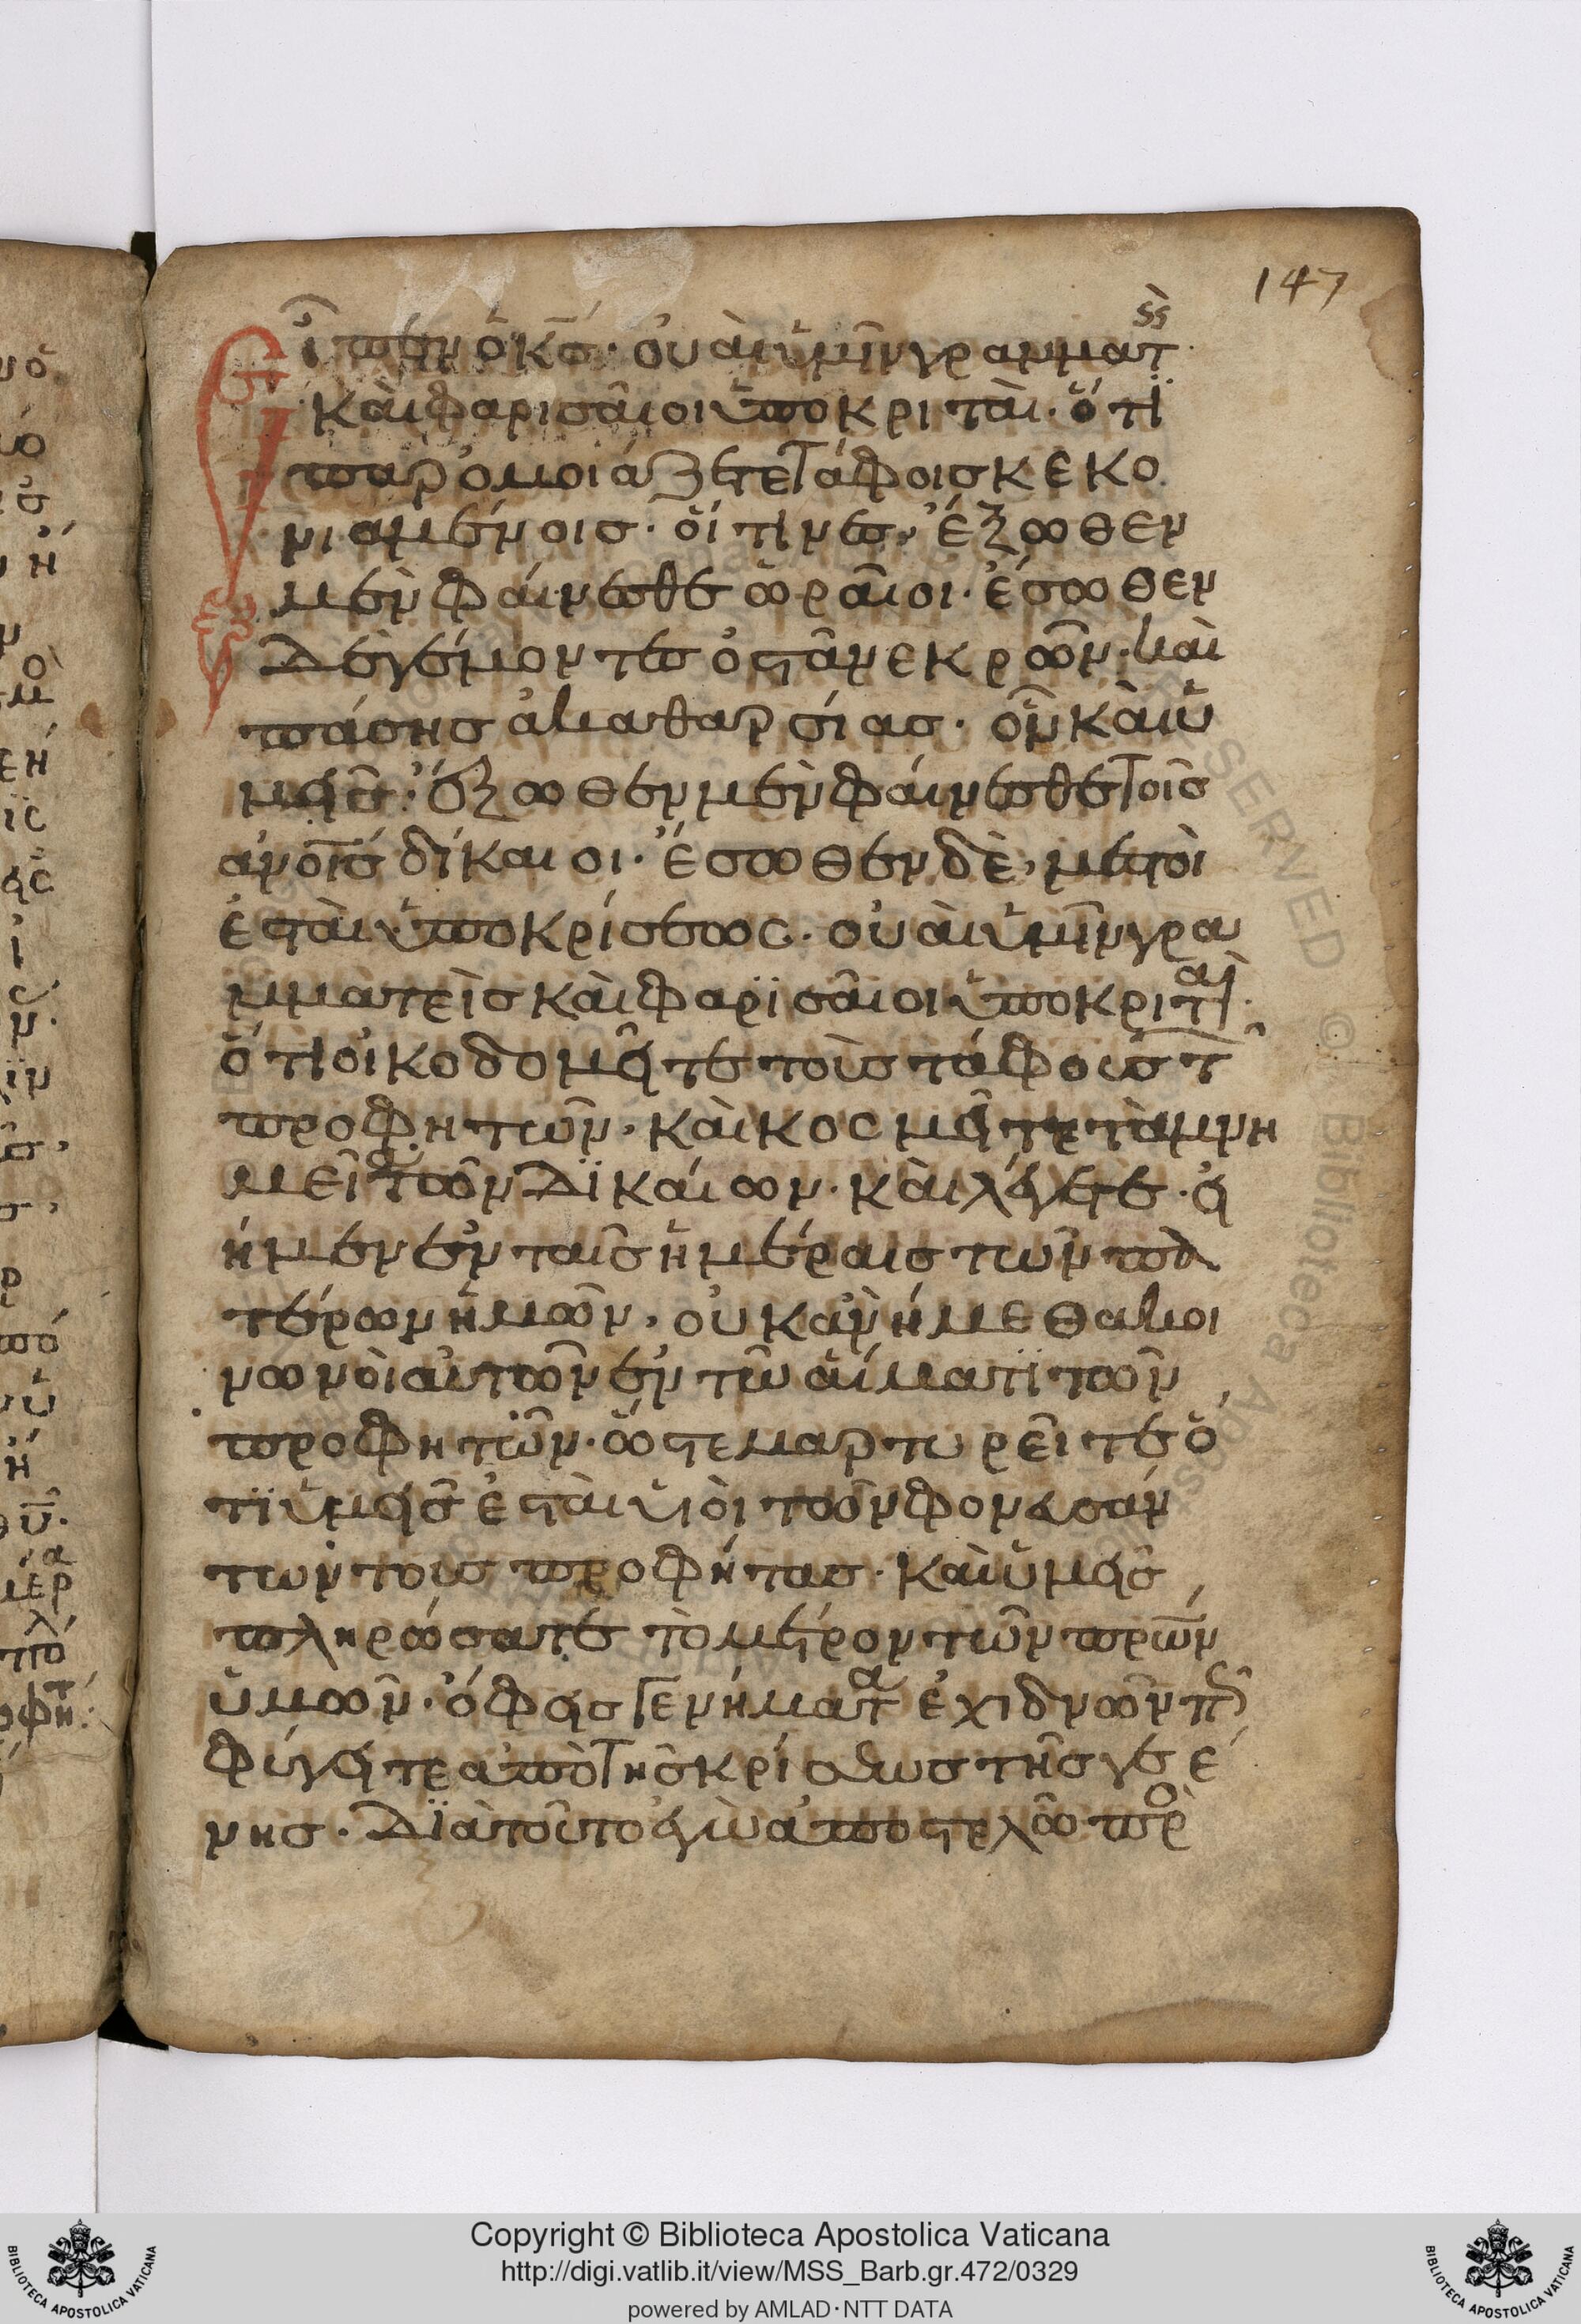 147
Εἶπεν ὁ κς̄· οὐαὶ ὑμῖν γραμματ
καὶ φαρισαῖοι ὑποκριταί· ὅτι
παρομοιάζετε τάφοις κεκο
νιαμένοις· οἵτινες, ἔξωθεν
μὲν φαίνεσθε ὡραῖοι· ἔσωθεν
δὲ γέμουσιν ὀστᾶ νεκρῶν· καὶ
πάσης ἀκαθαρσίας· οὖν καὶ ὑ
μεῖς· ἔξωθεν μὲν φαίνεσθε τοῖς
ἀνοῖς δίκαιοι· ἔσωθεν δὲ, μεστοί
ἐσται ὑποκρίσεως· οὐαὶ ὑμῖν γρα
μματεῖς καὶ φαρϊσαῖοι ὑποκριταὶ·
ὅτι οἰκοδομεῖτε τοὺς τάφους τ
προφητῶν· καὶ κοσμεῖτε τὰ μνη
μεῖα τῶν δϊκαίων· καὶ λέγετε· εἰ
ἤμεν ἐν ταῖς ἡμέραις τῶν πα
τέρων ἡμῶν, οὐκ ἂν ἤμεθα κοι
νωνοὶ αὐτῶν ἐν τῶ αἵματϊ τῶν
προφητῶν· ὥστε μαρτυρεῖτε ὅ
τϊ ὑμεῖς ἐσταὶ υἱοὶ τῶν φονευσάν
των τοὺς προφήτας· καὶ ὑμεῖς
πληρώσατε τὸ μέτρον τῶν πρων
ὑμῶν· ὄφεις γενήματα ἐχιδνῶν πῶς
φύγειτε ἀπὸ τῆς κρίσεως τῆς γεέ
νης· Δϊὰ τοῦτο ἐγὼ ἀποστελῶ πρὸ
Copyright © Biblioteca Apostolica Vaticana
http://digi.vatlib.it/view/MSS_Barb.gr.472/0329
powered by AMLAD·NTT DATA
BIBLIOTECA APOSTOLICA VATICANA
BIBLIOTECA APOSTOLICA VATICANA